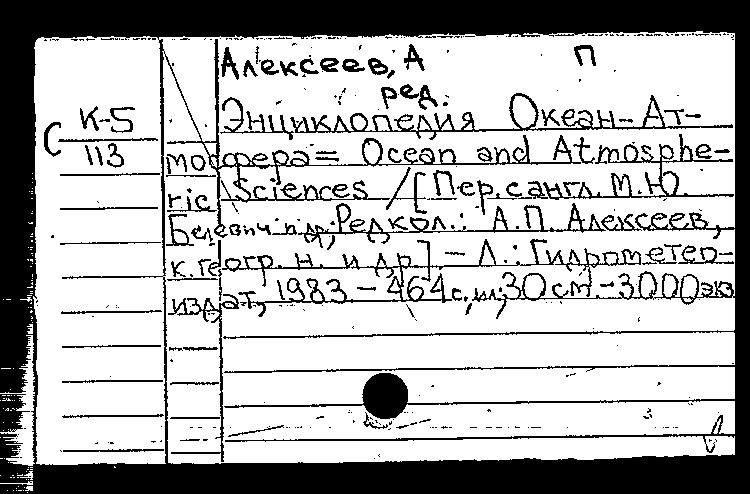 Алексеев, А П
ред.
С К-5 Энциклопедия Океан-Ат-
113 мосфера = Ocean and Atmosphe-
ric Sciences / [Пер. с англ. М.Ю.
Белевич и др.; Редкол.: А.П. Алексеев,
к. геогр. н. и др.] - Л.: Гидрометео-
издат, 1983. - 464 с., ил; 30 cm. - 3000 экз